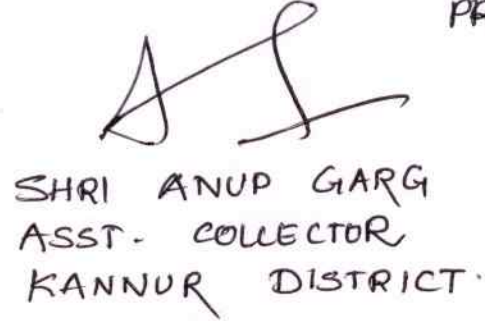 PR
SHRI ANUP GARG
ASST. COLLECTOR
KANNUR DISTRICT.